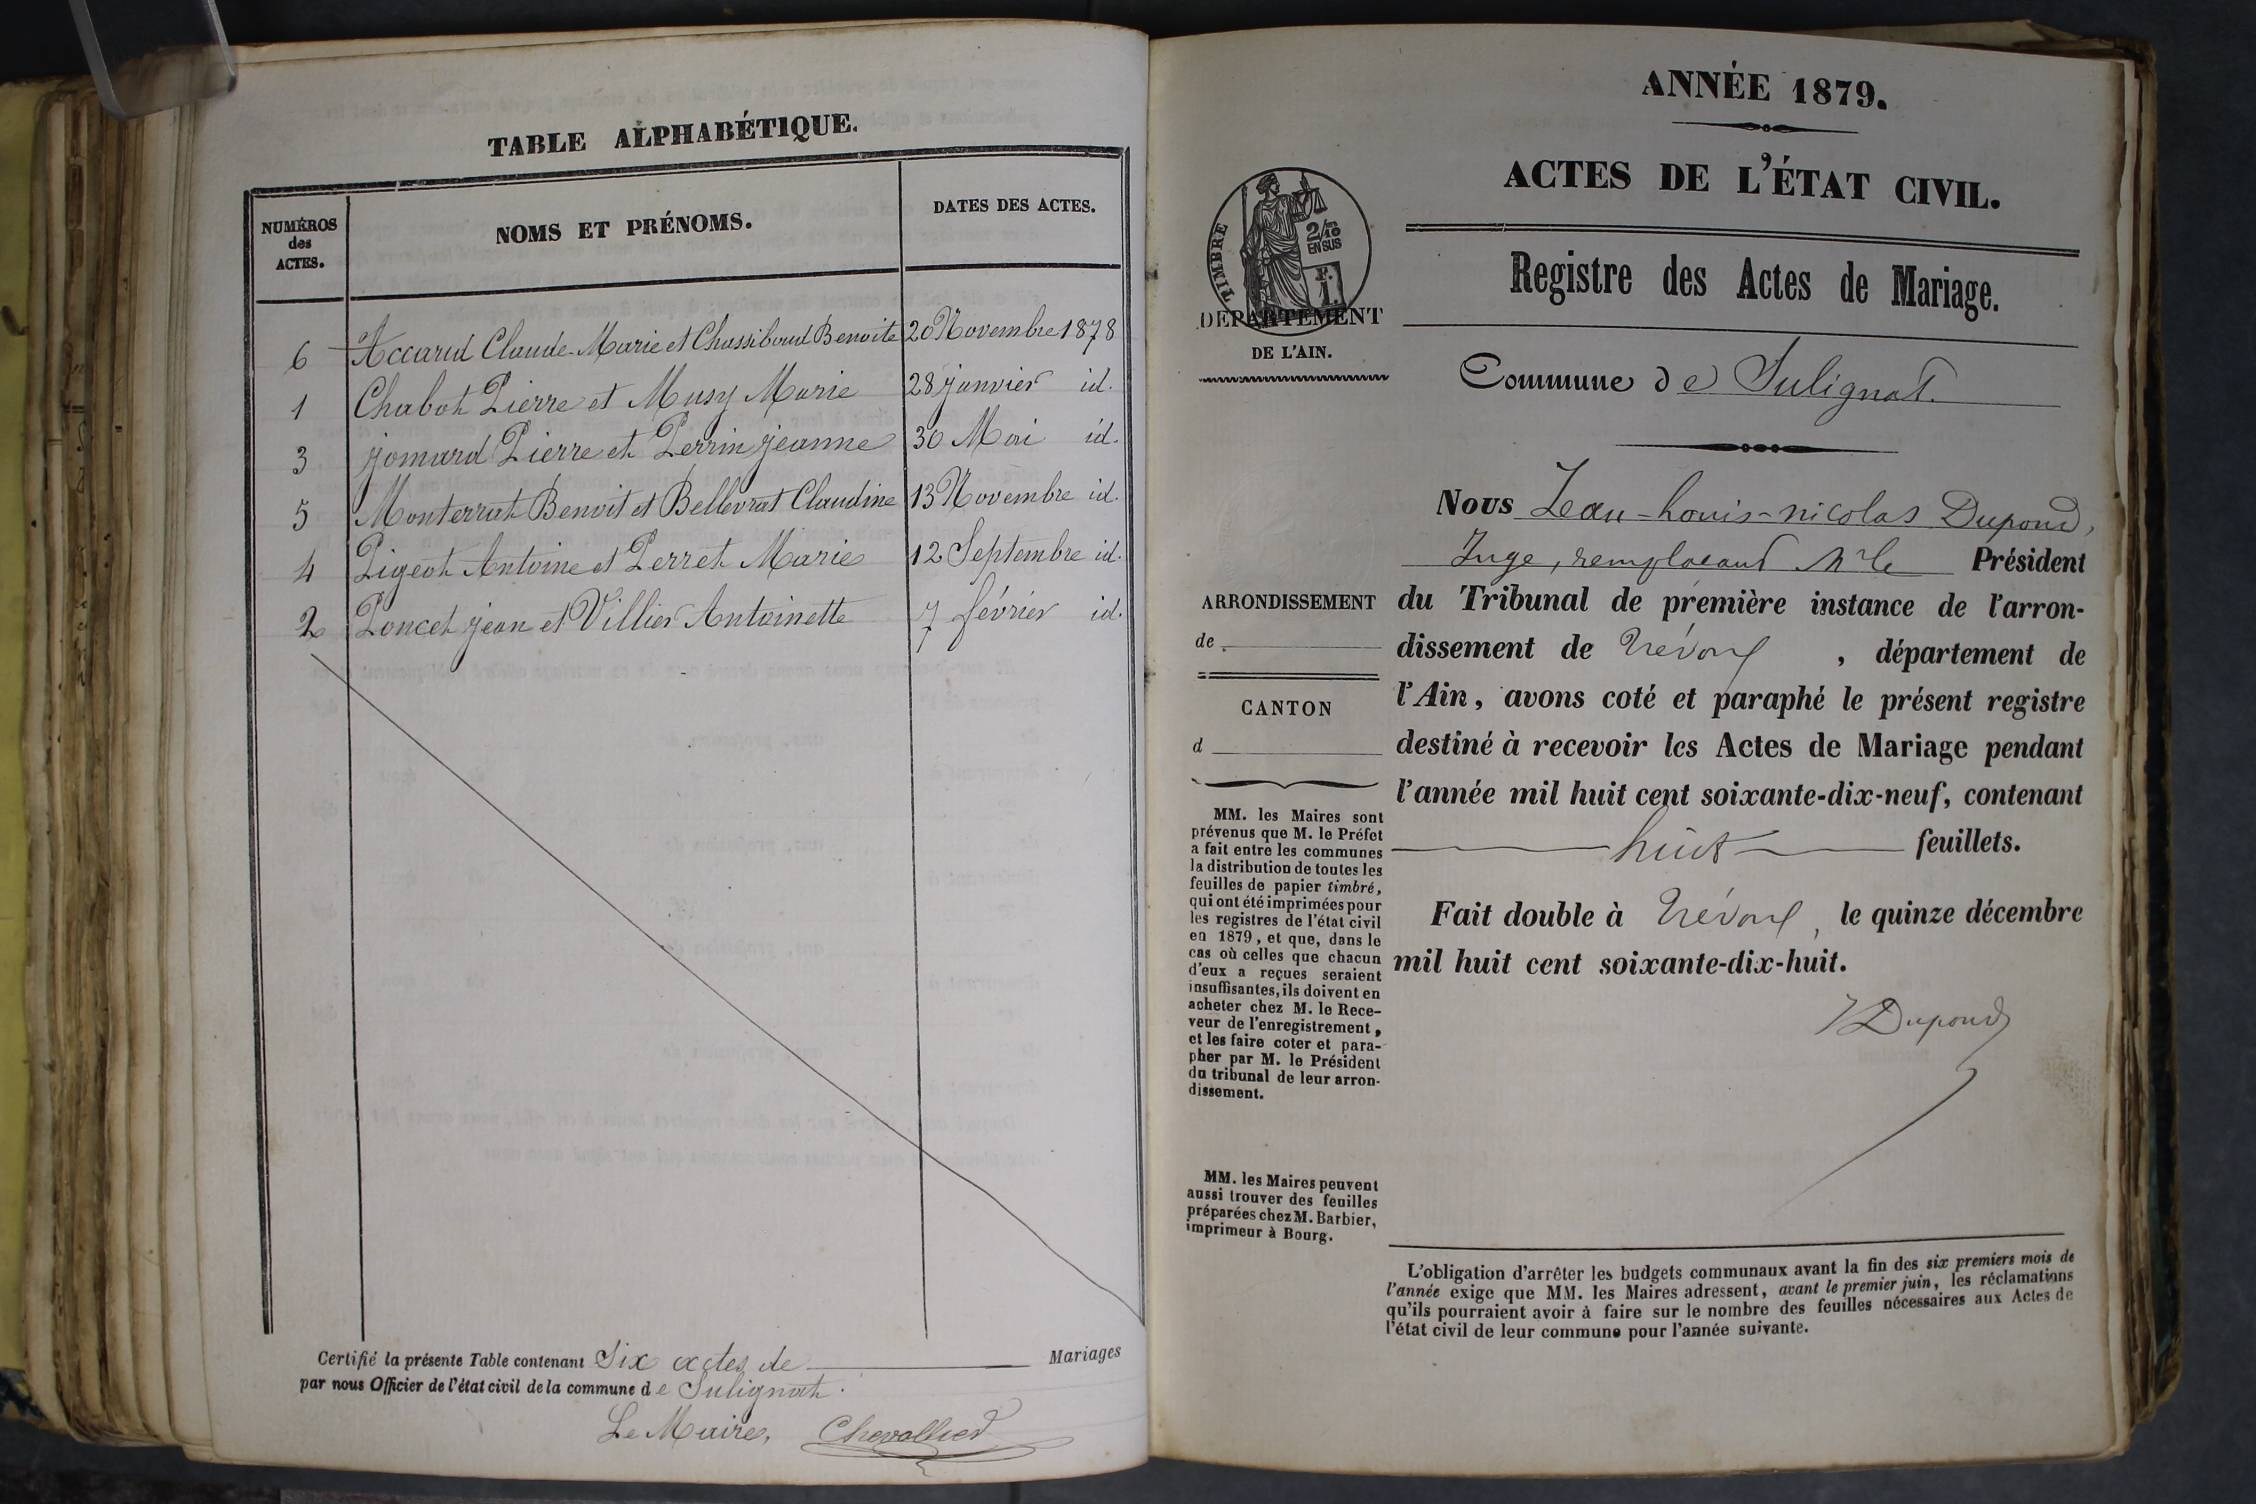 TABLE ALPHABÉTIQUE.
NUMÉROS
des
ACTES.
NOMS ET PRÉNOMS.
DATES DES ACTES.
6 Accarud Claude-Marie et Chassiboud Benoite 20 Novembre 1878
1 Chabot Pierre et Musy Marie 28 janvier id.
3 jomard Pierre et Perrin jeanne 30 Mai id.
5 Monterrat Benoit et Bellevrat Claudine 13 Novembre id.
4 Pigeot Antoine et Perret Marie 12 Septembre id.
2 Poncet jean et Villier Antoinette 7 février id.
Certifié la présente Table contenant Six actes de Mariages
par nous Officier de l'état civil de la commune de Sulignat.
Le Maire, Chevallier
ANNÉE 1879.
ACTES DE L'ÉTAT CIVIL.
Registre des Actes de Mariage.
TIMBRE
2/10
EN SUS
F.
1.
DÉPARTEMENT
DE L'AIN.
Commune de Sulignat.
Nous Jean-Louis-nicolas Dupond,
Juge, remplaçant Mr le Président
du Tribunal de première instance de l'arron-
dissement de Trévoux, département de
l'Ain, avons coté et paraphé le présent registre
destiné à recevoir les Actes de Mariage pendant
l'année mil huit cent soixante-dix-neuf, contenant
huit feuillets.
Fait double à Trévoux, le quinze décembre
mil huit cent soixante-dix-huit.
Dupond
ARRONDISSEMENT
de
CANTON
d
MM. les Maires sont
prévenus que M. le Préfet
a fait entre les communes
la distribution de toutes les
feuilles de papier timbré,
qui ont été imprimées pour
les registres de l'état civil
en 1879, et que, dans le
cas où celles que chacun
d'eux a reçues seraient
insuffisantes, ils doivent en
acheter chez M. le Rece-
veur de l'enregistrement,
et les faire coter et para-
pher par M. le Président
du tribunal de leur arron-
dissement.
MM. les Maires peuvent
aussi trouver des feuilles
préparées chez M. Barbier,
imprimeur à Bourg.
L'obligation d'arrêter les budgets communaux avant la fin des six premiers mois de
l'année exige que MM. les Maires adressent, avant le premier juin, les réclamations
qu'ils pourraient avoir à faire sur le nombre des feuilles nécessaires aux Actes de
l'état civil de leur commune pour l'année suivante.